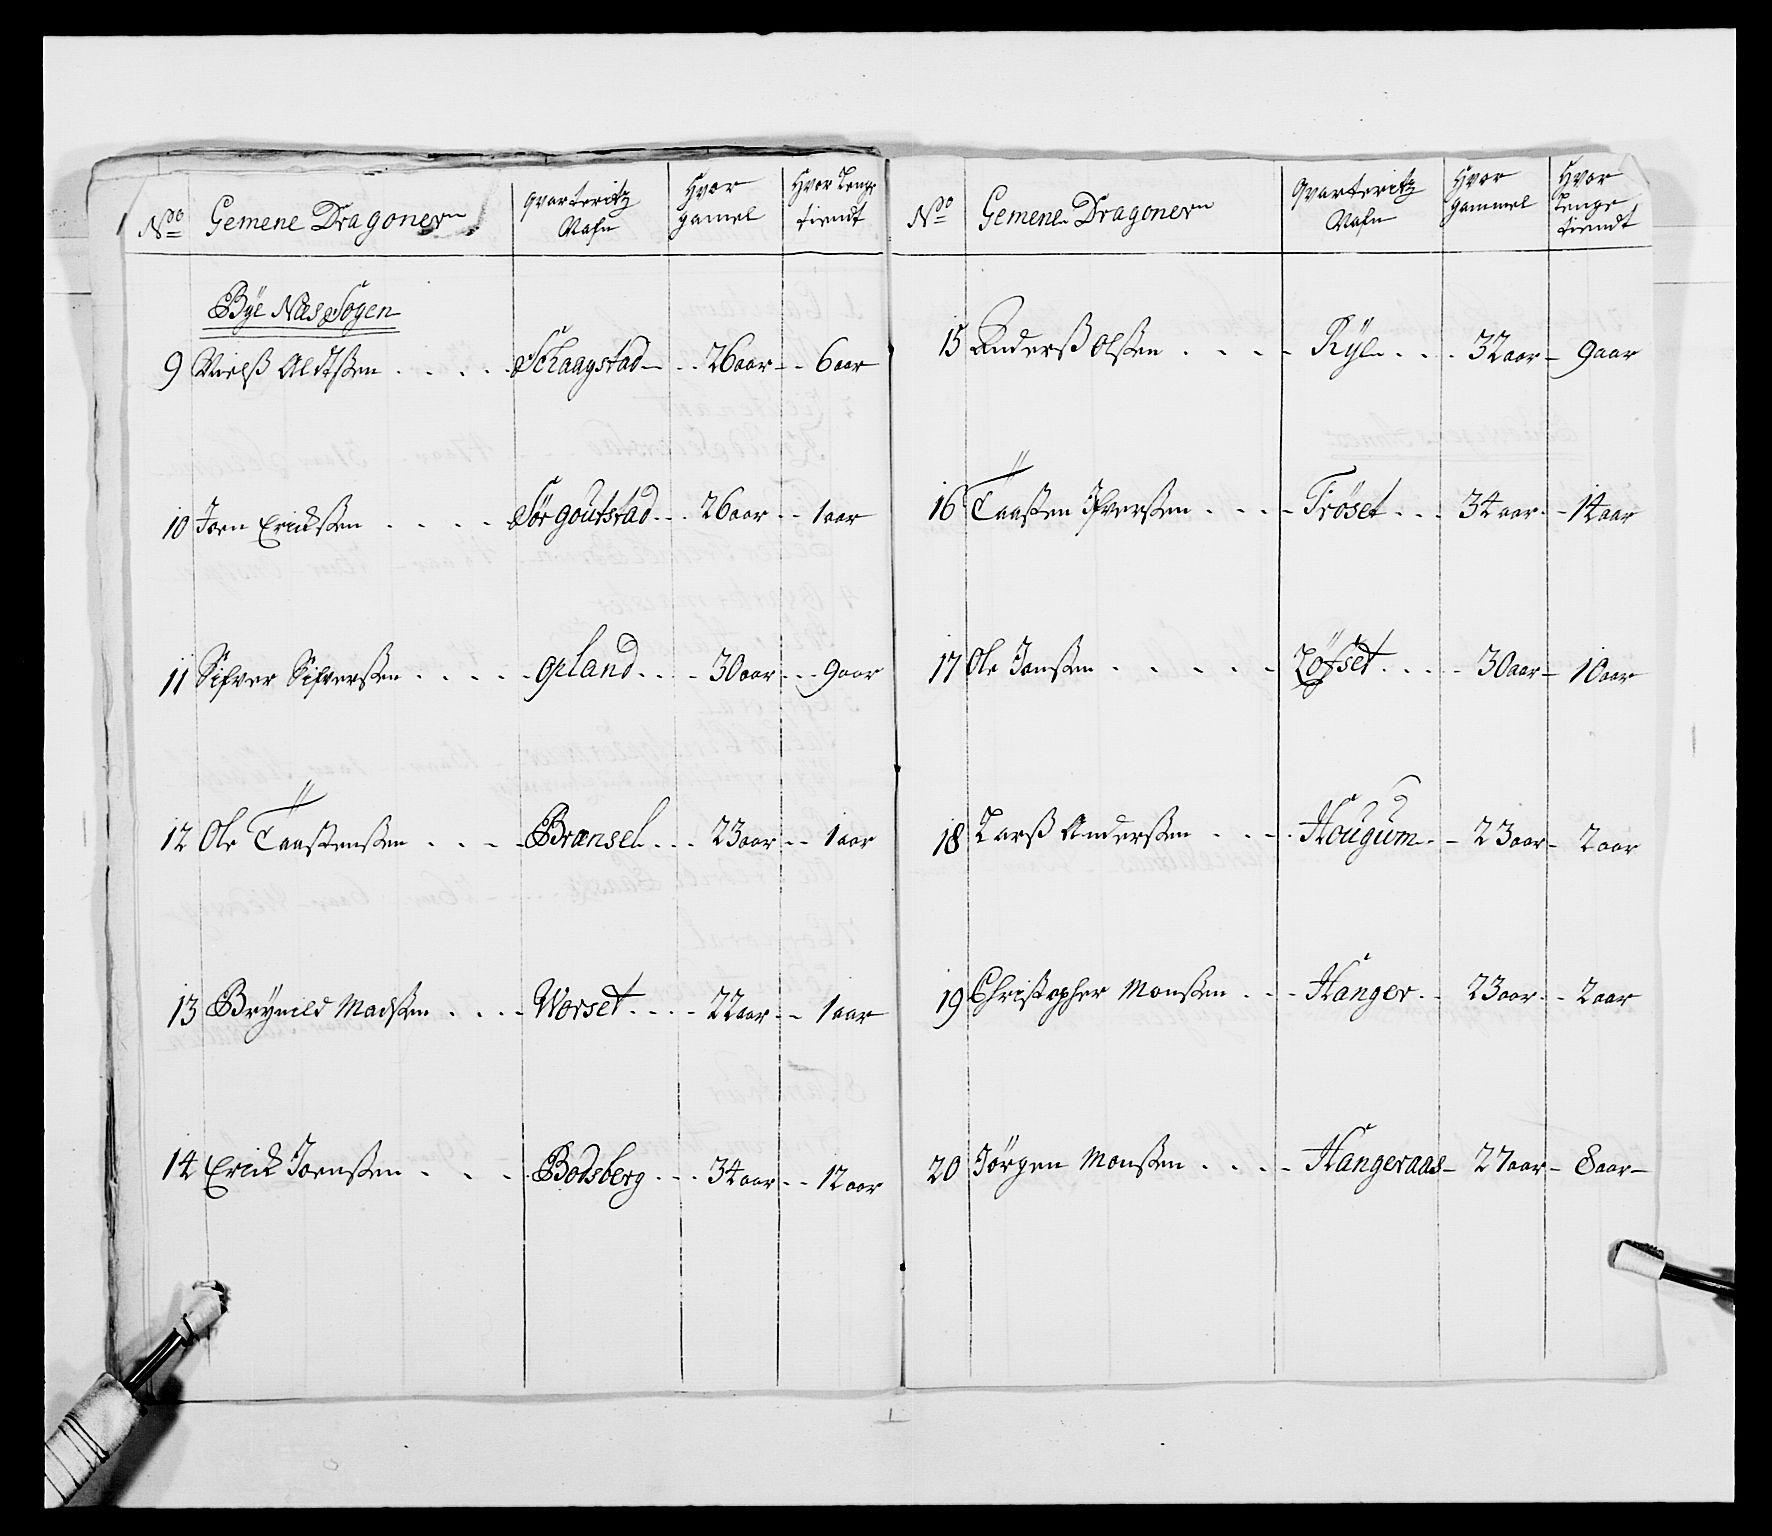 No Gemene Dragoner
qvarteritz Nafn
Hvor gamel
Hvor Lenge tiendt
Bye Næs Sogen
9 Nielß Aldtßen . . . . . Schaagstad - . . 26 aar - - 6 aar
10 Joen Erickßen . . . . Sörgoutstad . . . 26 aar - - 1 aar
11 Sifver Sifverßen . . . . . Opland . . . - 30 aar - . . 9 aar
12 Ole Taaßtenßen . . . - Brænsel . . . 23 aar - - 1 aar
13 Brynild Madßen . . . . Worset . . . - 22 aar - - 1 aar
14 Erick Joenßen . . . . Bodsberg . . . 34 aar - - 12 aar
No Gemene Dragoner
qvarteritz Nafn
Hvor gammel
Hvor Lenge tiendt
15 Anderß Olßen . . . - Rÿe . . . 32 aar - 9 aar
16 Taaßen Ifverßen . . . - Fröset . . . 34 aar - 14 aar
17 Ole Jonßen . . . . . - Löfset . . . - 30 aar - 10 aar
18 Larß Anderßen . . . . Hougum - - 23 aar - 2 aar
19 Christopher Monßen . . - Hanger - . 23 aar - - 2 aar
20 Jörgen Monßen . . . - Hangeraas - 27 aar - 8 aar -